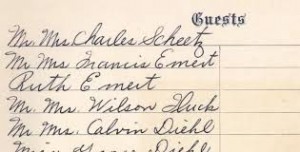 Guests
Mr. Mrs. Charles Scheetz
Mr Mrs Francis Emert
Ruth Emert
Mr. Mrs. Wilson Fluck
Mr Mrs. Calvin Diehl
Diehl